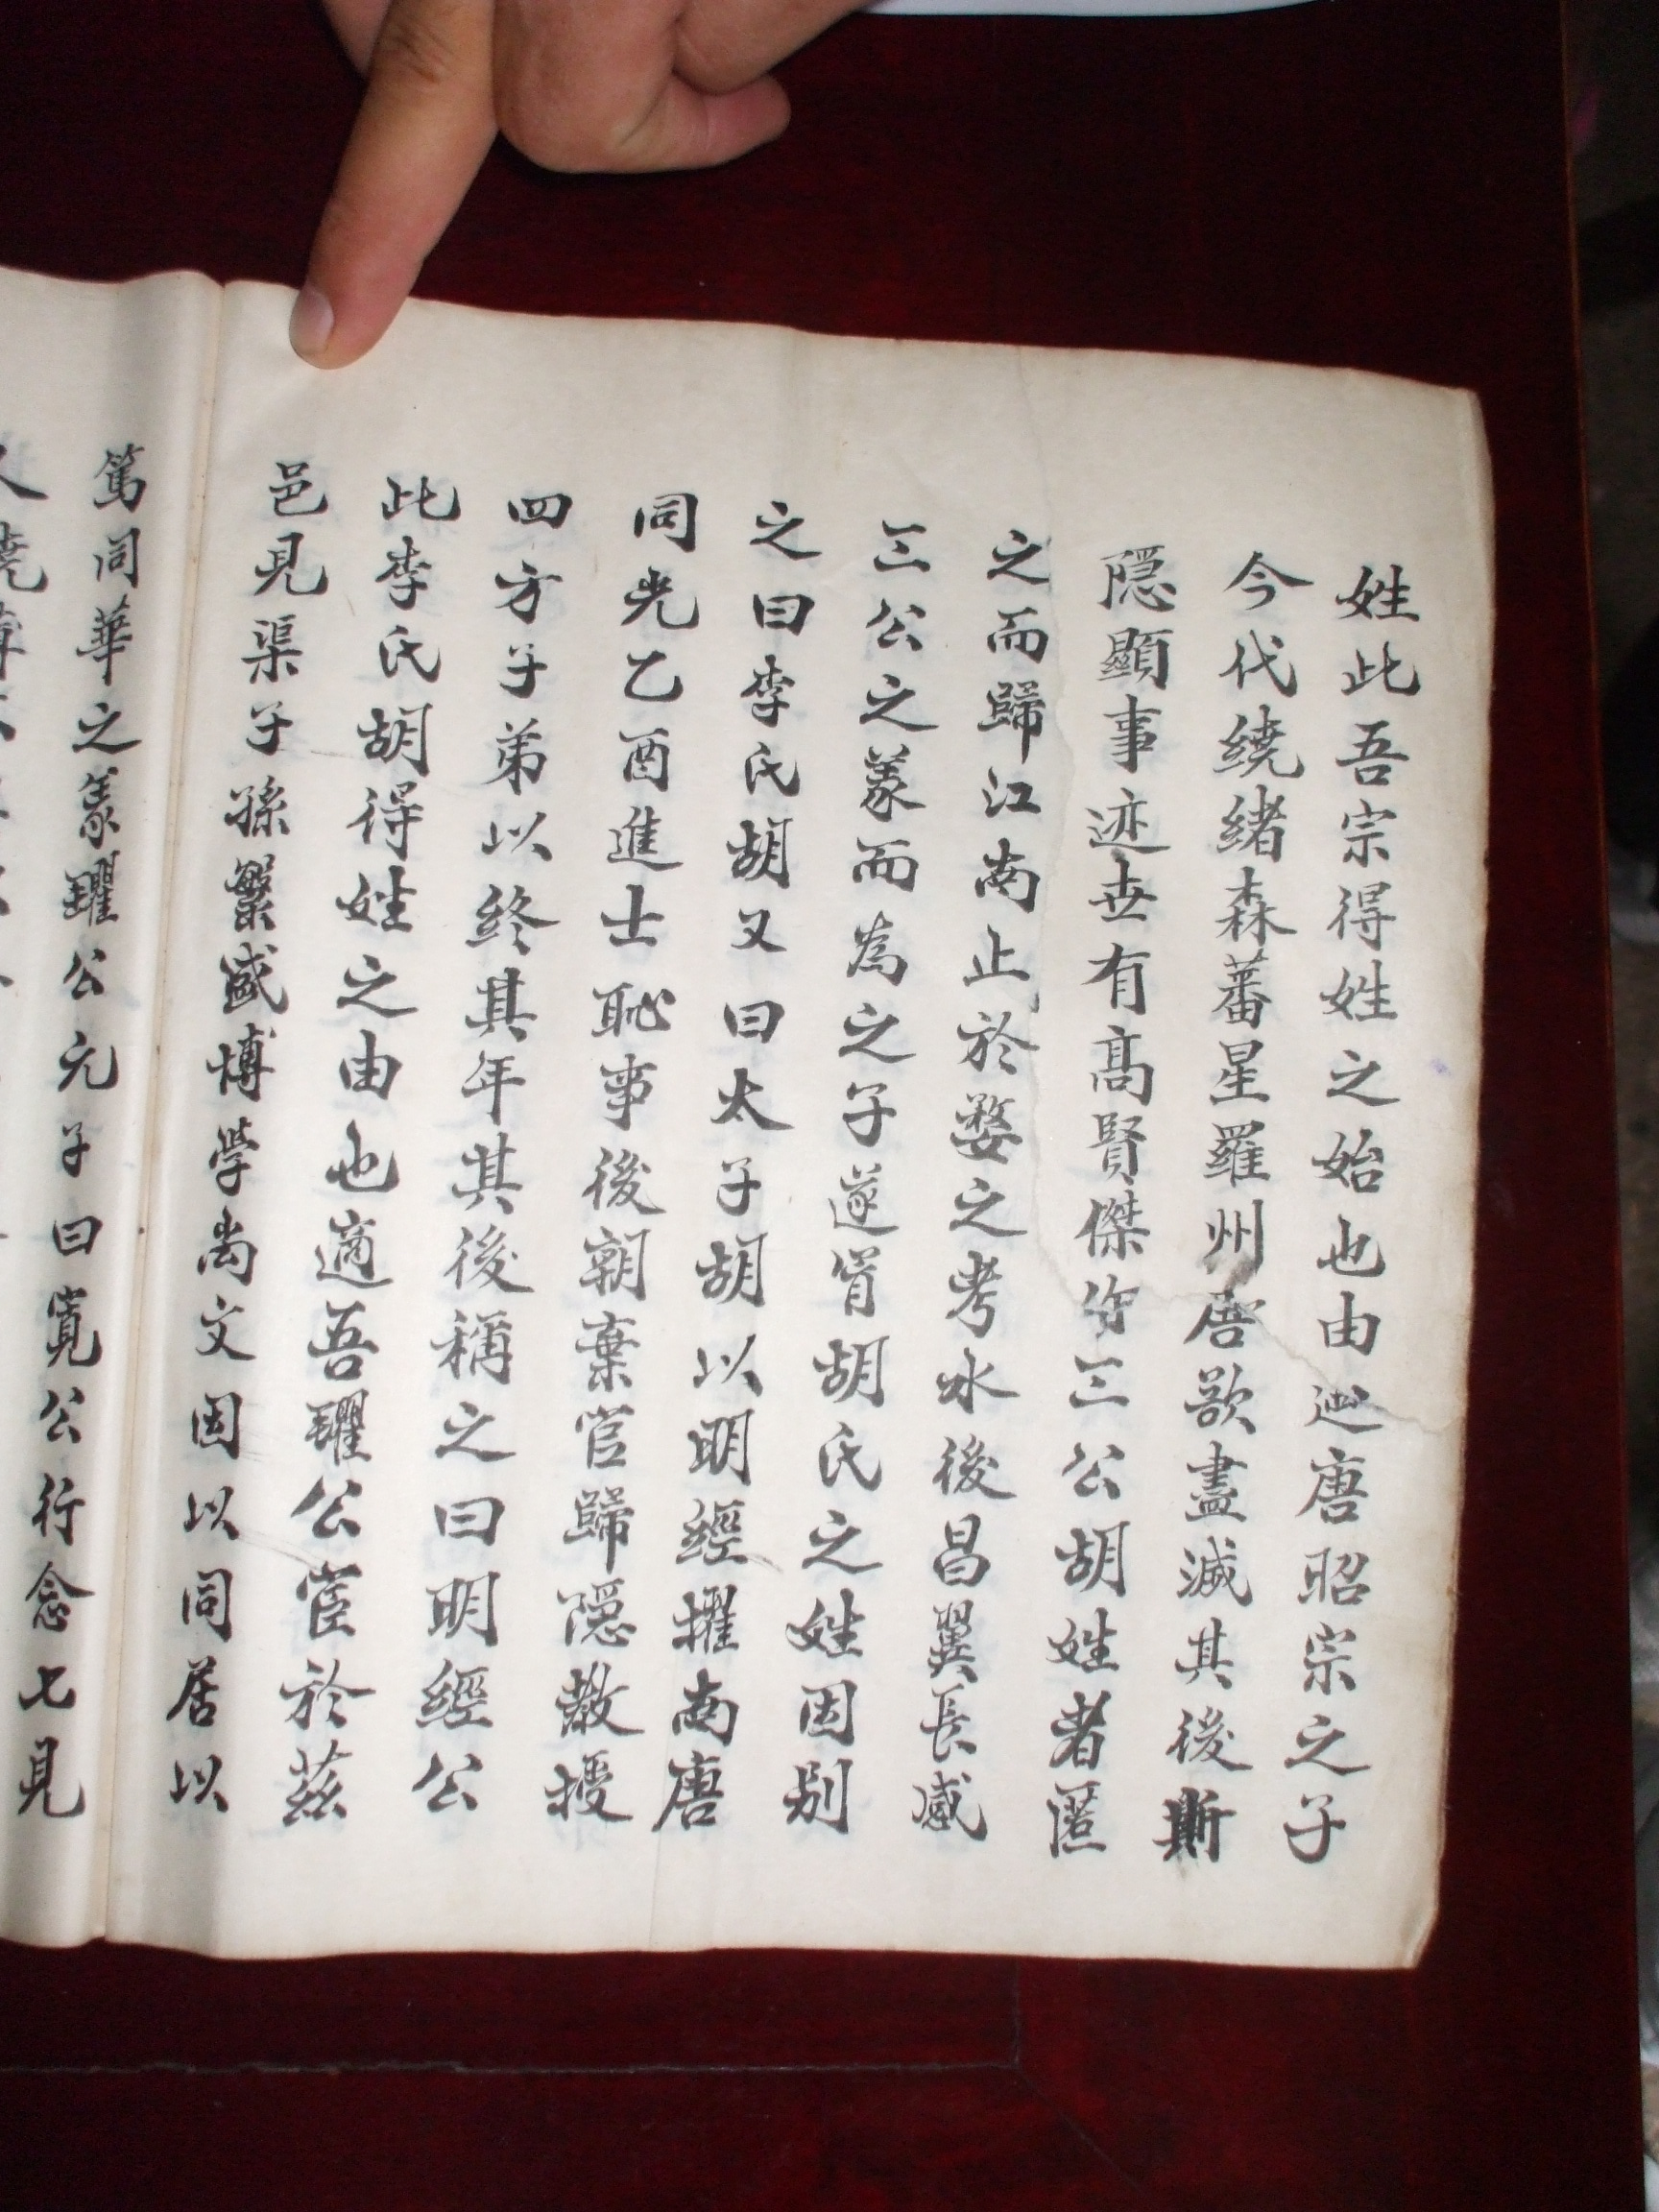 姓此吾宗得姓之始也由迆唐昭宗之子
今代繞緒森蕃星羅州居欲盡滅其後斯
隠顯事迹世有高賢傑作三公胡姓者匿
之而歸江南止於婺之考水後昌翼長感
三公之義而為之子遂冒胡氏之姓因别
之曰李氏胡又曰太子胡以明經擢南唐
同光乙酉進士恥事後朝棄官歸隠教授
四方子弟以終其年其後稱之曰明經公
此李氏胡得姓之由也適吾瞿公宦於茲
邑見渠子孫繁盛博學尚文因以同居以
篤同華之義瞿公元子曰寛公行念七見